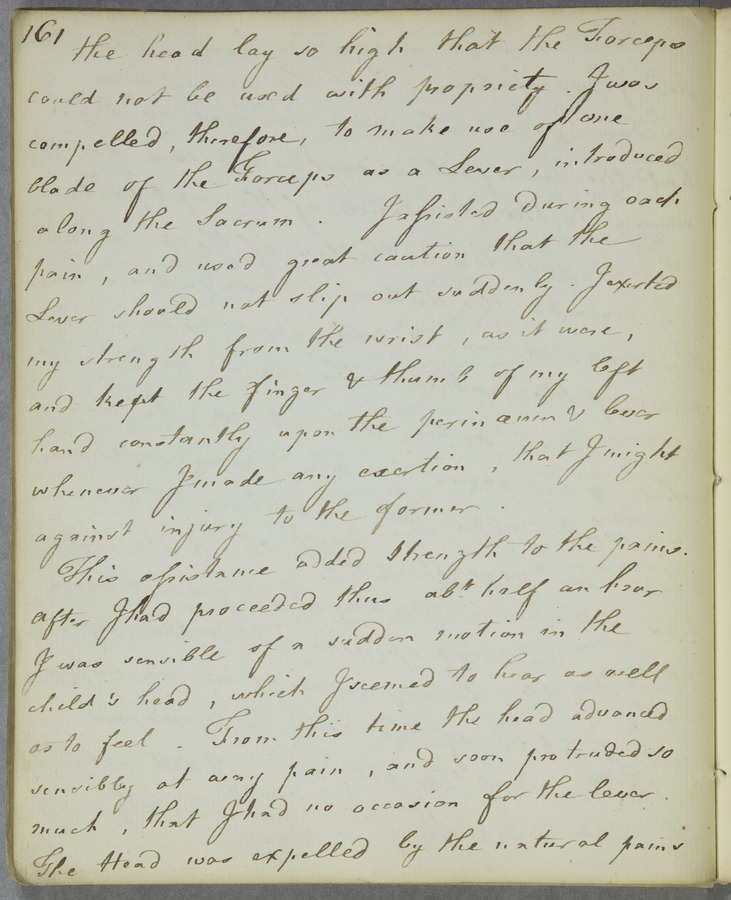 161
the head lay so high that the Forceps
could not be used with propriety. I was
compelled, therefore, to make use of one
blade of the Forceps as a Lever, introduced
along the Sacrum. I assisted during each
pain, and used great caution that the
Lever should not slip out suddenly. I exerted
my strength from the wrist, as it were,
and kept the finger & thumb of my left
hand constantly upon the perinæum & lever
whenever I made any exertion, that I might
against injury to the former.
This assistance added strength to the pains.
after I had proceeded thus abt. half an hour
I was sensible of a sudden motion in the
child's head, which I seemed to hear as well
as to feel. From this time the head advanced
sensibly at every pain, and soon protruded so
much, that I had no occasion for the lever.
The Head was expelled by the natural pains